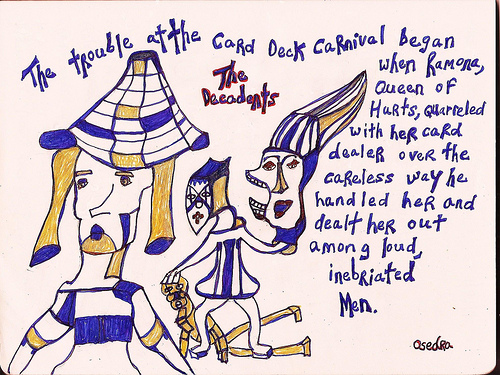 The trouble at the Card Deck Carnival began
when Ramona,
Queen of
Harts, quarreled
with her card
dealer over the
careless way he
handled her and
dealt her out
among loud,
inebriated
Men.
The
Decadents
Osedra